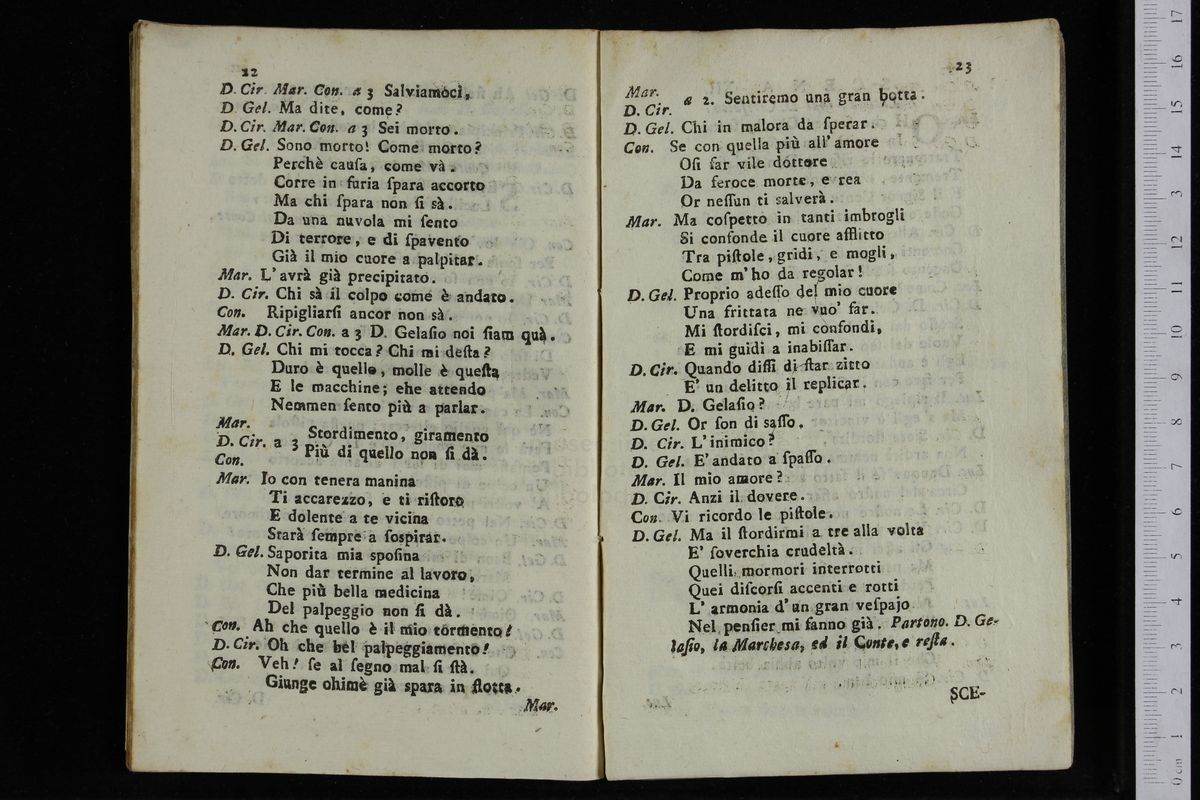 22
D. Cir. Mar. Con. a 3 Salviamoci,
D Gel. Ma dite, come?
D. Cir. Mar. Con. a 3 Sei morto.
D. Gel. Sono morto! Come morto?
Perchè cauſa, come và.
Corre in furia ſpara accorto
Ma chi ſpara non ſi sà.
Da una nuvola mi ſento
Di terrore, e di ſpavento
Già il mio cuore a palpitar.
Mar. L'avrà già precipitato.
D. Cir. Chi sà il colpo come è andato.
Con. Ripigliarſi ancor non sà.
Mar. D. Cir. Con. a 3 D. Gelaſio noi ſiam quà.
D. Gel. Chi mi tocca? Chi mi deſta?
Duro è quello, molle è queſta
E le macchine; che attendo
Nemmen ſento più a parlar.
Mar.
D. Cir. a 3 Stordimento, giramento
Con. Più di quello non ſi dà.
Mar. Io con tenera manina
Ti accarezzo, e ti riſtoro
E dolente a te vicina
Starà ſempre a ſoſpirar.
D. Gel. Saporita mia spoſina
Non dar termine al lavoro,
Che più bella medicina
Del palpeggio non ſi dà.
Con. Ah che quello è il mio tormento!
D. Cir. Oh che bel palpeggiamento!
Con. Veh! ſe al ſegno mal ſi ſtà.
Giunge ohimè già spara in flotta.
Mar.
23
Mar.
D. Cir. a 2. Sentiremo una gran botta.
D. Gel. Chi in malora da ſperar.
Con. Se con quella più all'amore
Oſi far vile dottore
Da feroce morte, e rea
Or neſſun ti salverà.
Mar. Ma coſpetto in tanti imbrogli
Si confonde il cuore afflitto
Tra piſtole, gridi, e mogli,
Come m'ho da regolar!
D. Gel. Proprio adeſſo del mio cuore
Una frittata ne vuo' far.
Mi ſtordiſci, mi confondi,
E mi guidi a inabiſſar.
D. Cir. Quando diſſi di ſtar zitto
E' un delitto il replicar.
Mar. D. Gelaſio?
D. Gel. Or ſon di saſſo.
D. Cir. L'inimico?
D. Gel. E' andato a ſpaſſo.
Mar. Il mio amore?
D. Cir. Anzi il dovere.
Con. Vi ricordo le piſtole.
D. Gel. Ma il ſtordirmi a tre alla volta
E' ſoverchia crudeltà.
Quelli mormori interrotti
Quei diſcorſi accenti e rotti
L' armonia d'un gran veſpajo
Nel penſier mi fanno già. Partono. D. Ge-
laſio, la Marcheſa, ed il Conte, e reſta.
SCE-